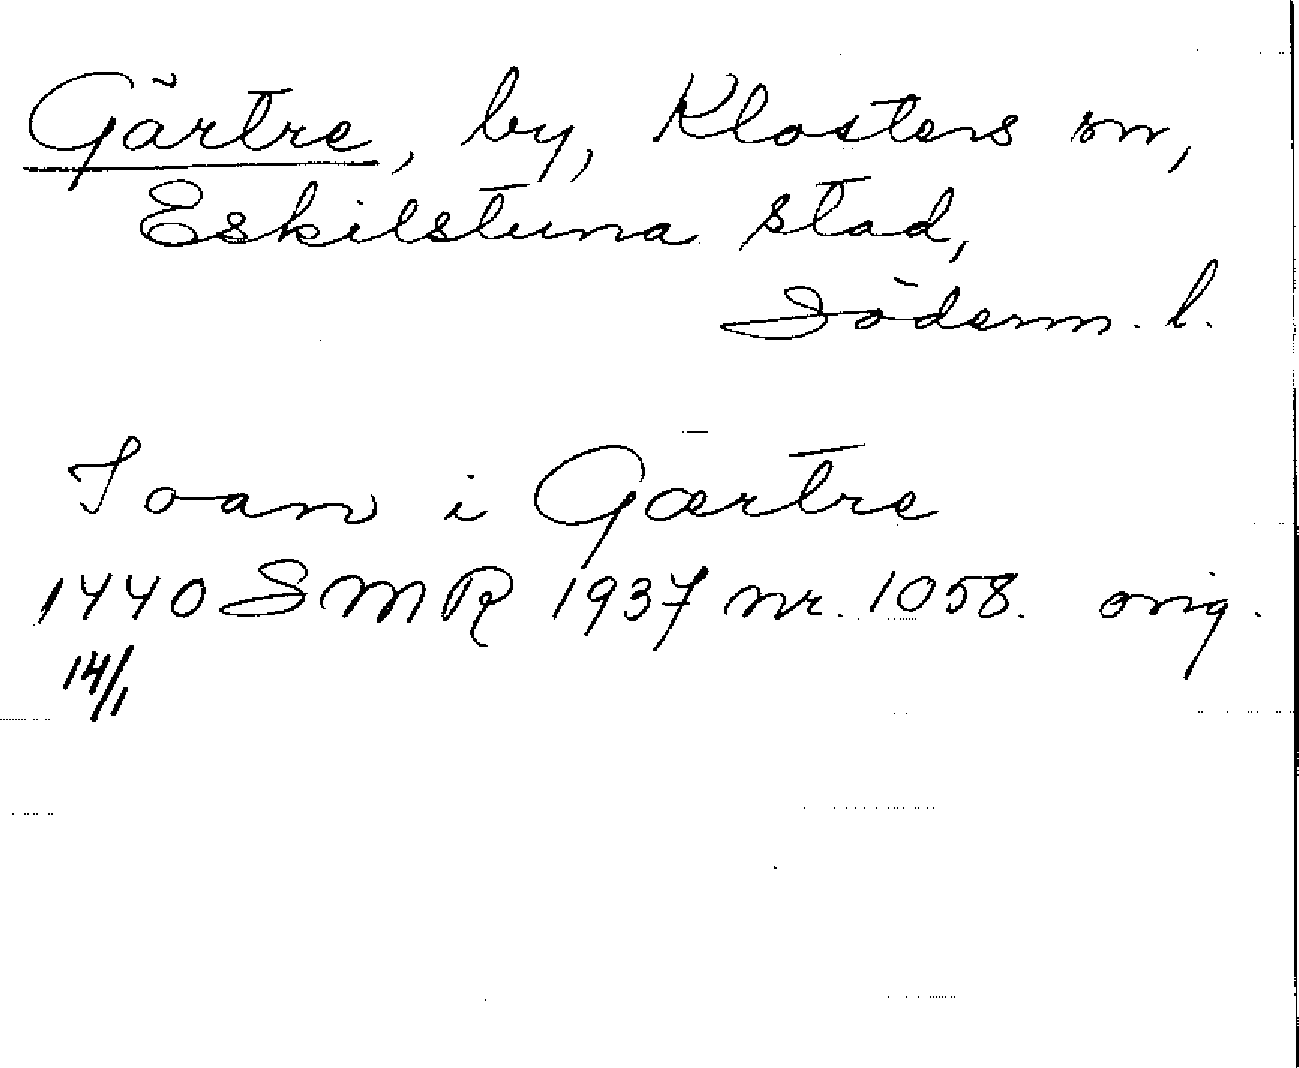 Gärtre, by, Klosters sn,
Eskilstuna stad,
Söderm. l.
Ioan i Gærtre
1440 SMR 1937 nr. 1058. orig.
14/1